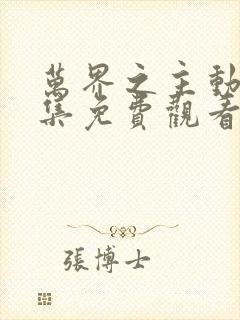 萬界之主動
集免費觀看
張博士